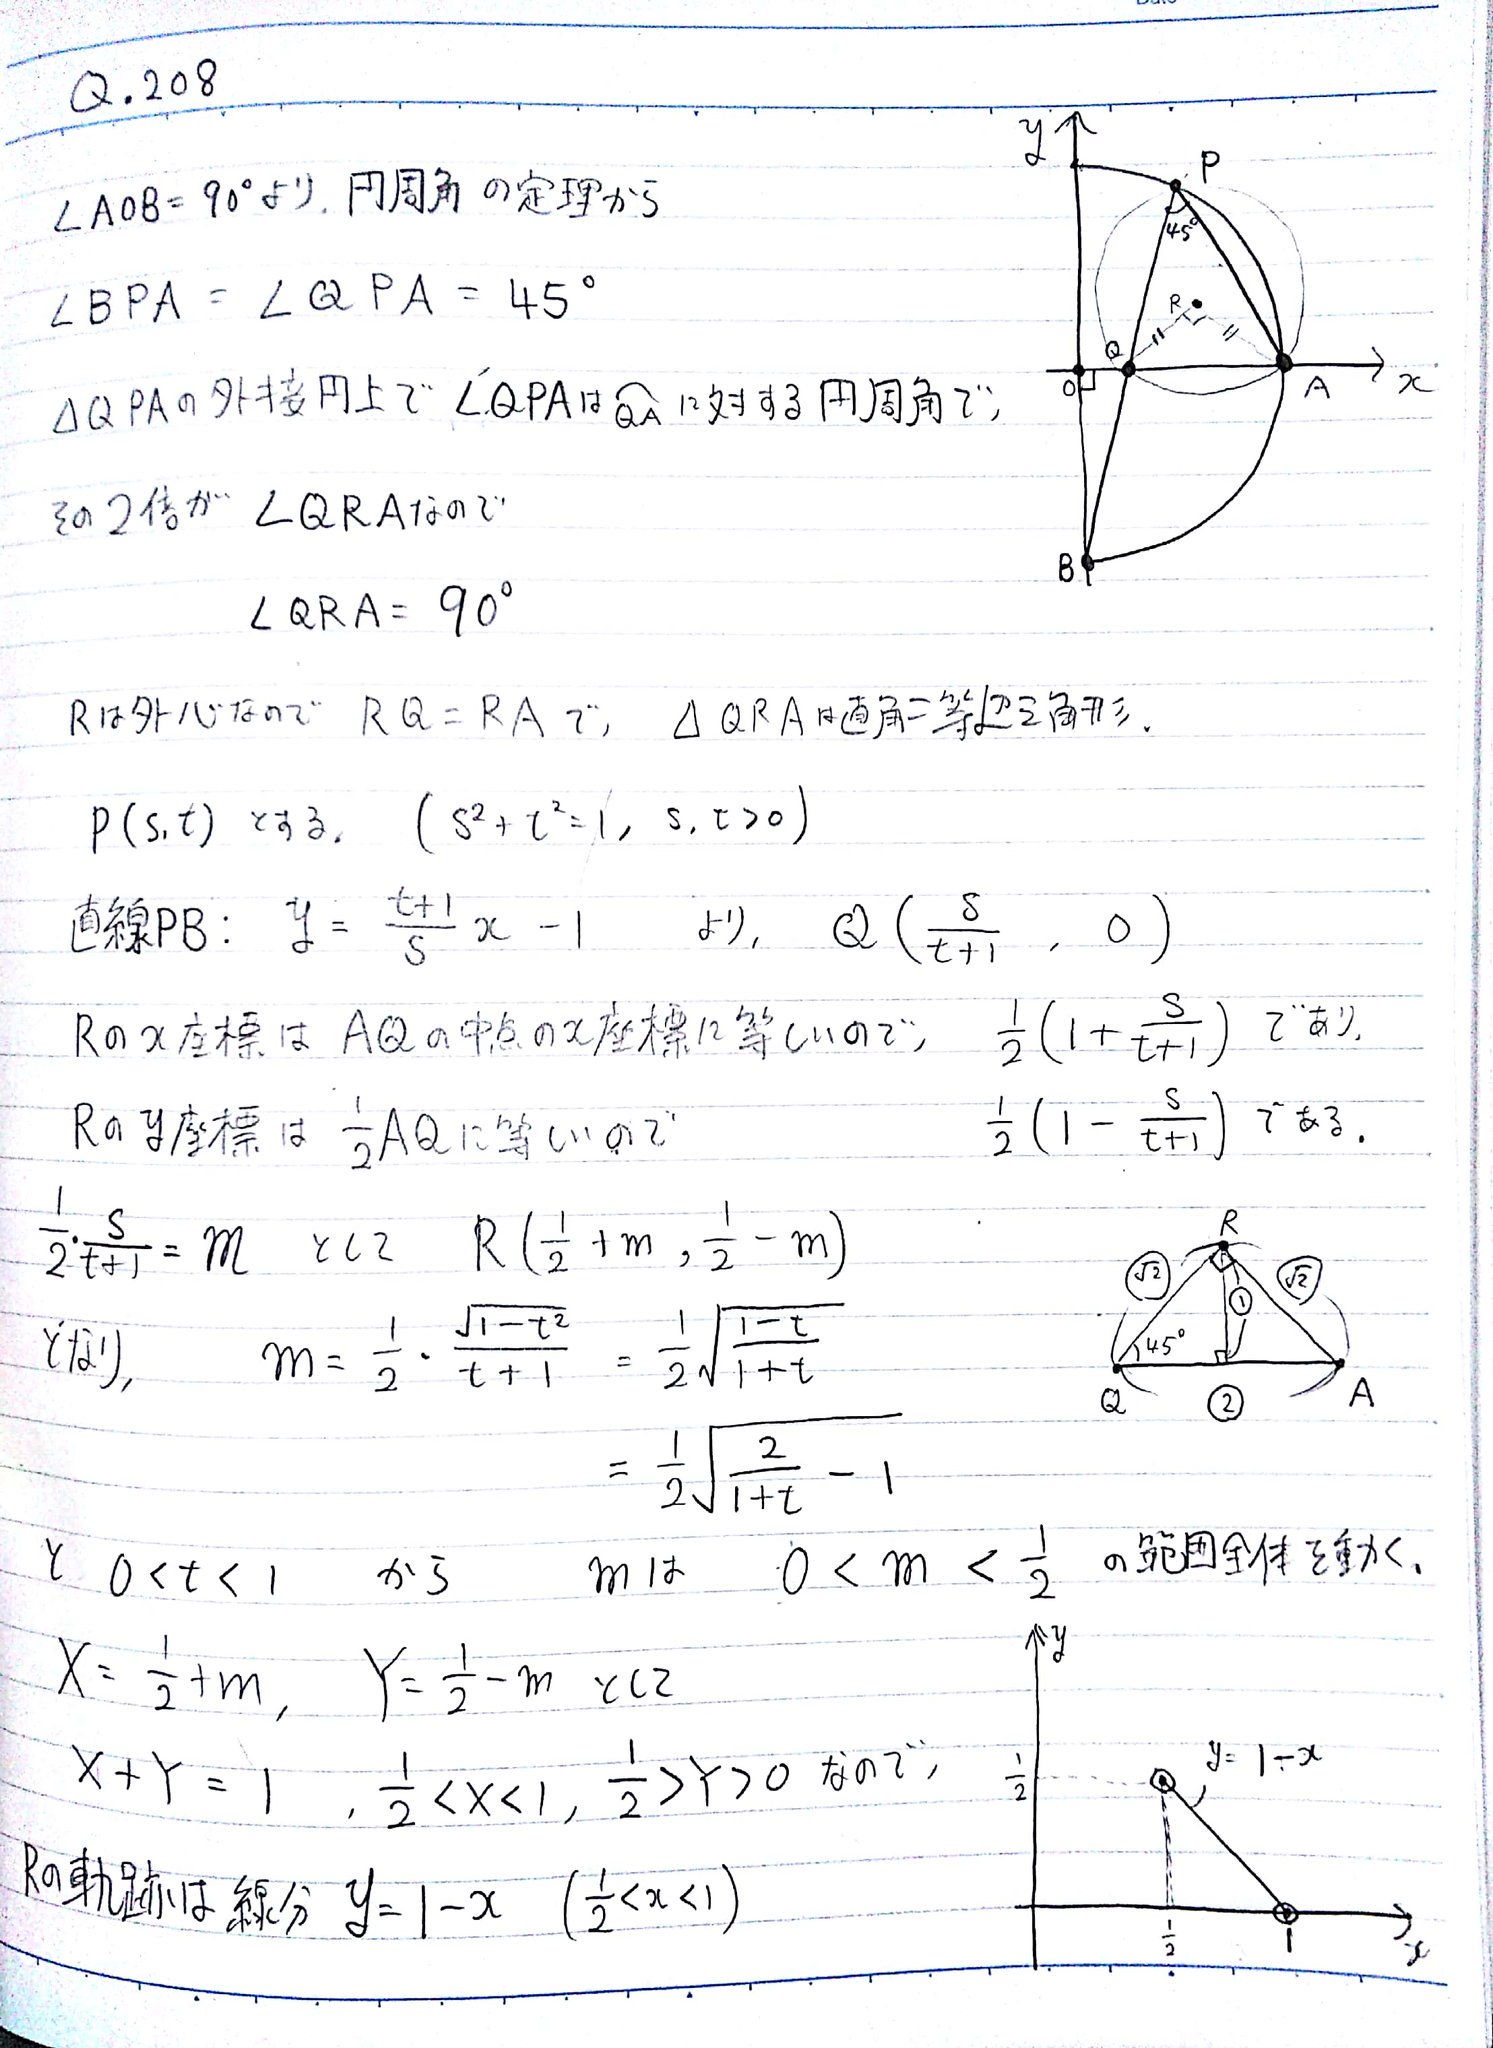 Q.208
∠AOB = 90°より, 円周角の定理から
∠BPA = ∠QPA = 45°
△QPAの外接円上で ∠QPAは⌒QAに対する円周角で,
その2倍が ∠QRAなので
∠QRA = 90°
Rは外心なので RQ = RA で, △QRAは直角二等辺三角形.
P(s,t) とする. (s²+t²=1, s,t>0)
直線PB: y = (t+1)/s x - 1 より, Q(s/(t+1), 0)
Rのx座標は AQの中点のx座標に等しいので, 1/2(1 + s/(t+1)) であり,
Rのy座標は 1/2 AQに等しいので 1/2(1 - s/(t+1)) である.
1/2・s/(t+1) = m として R(1/2 + m, 1/2 - m)
となり, m = 1/2・√(1-t²)/(t+1) = 1/2 √((1-t)/(1+t))
= 1/2 √(2/(1+t) - 1)
と 0<t<1 から mは 0<m<1/2 の範囲全体を動く.
X = 1/2 + m, Y = 1/2 - m として
X+Y = 1, 1/2<X<1, 1/2>Y>0 なので,
Rの軌跡は線分 y = 1-x (1/2<x<1)
y
P
45°
R
Q
O
A
x
B
R
√2
√2
1
45°
Q
2
A
y
y = 1-x
1/2
1/2
1
x